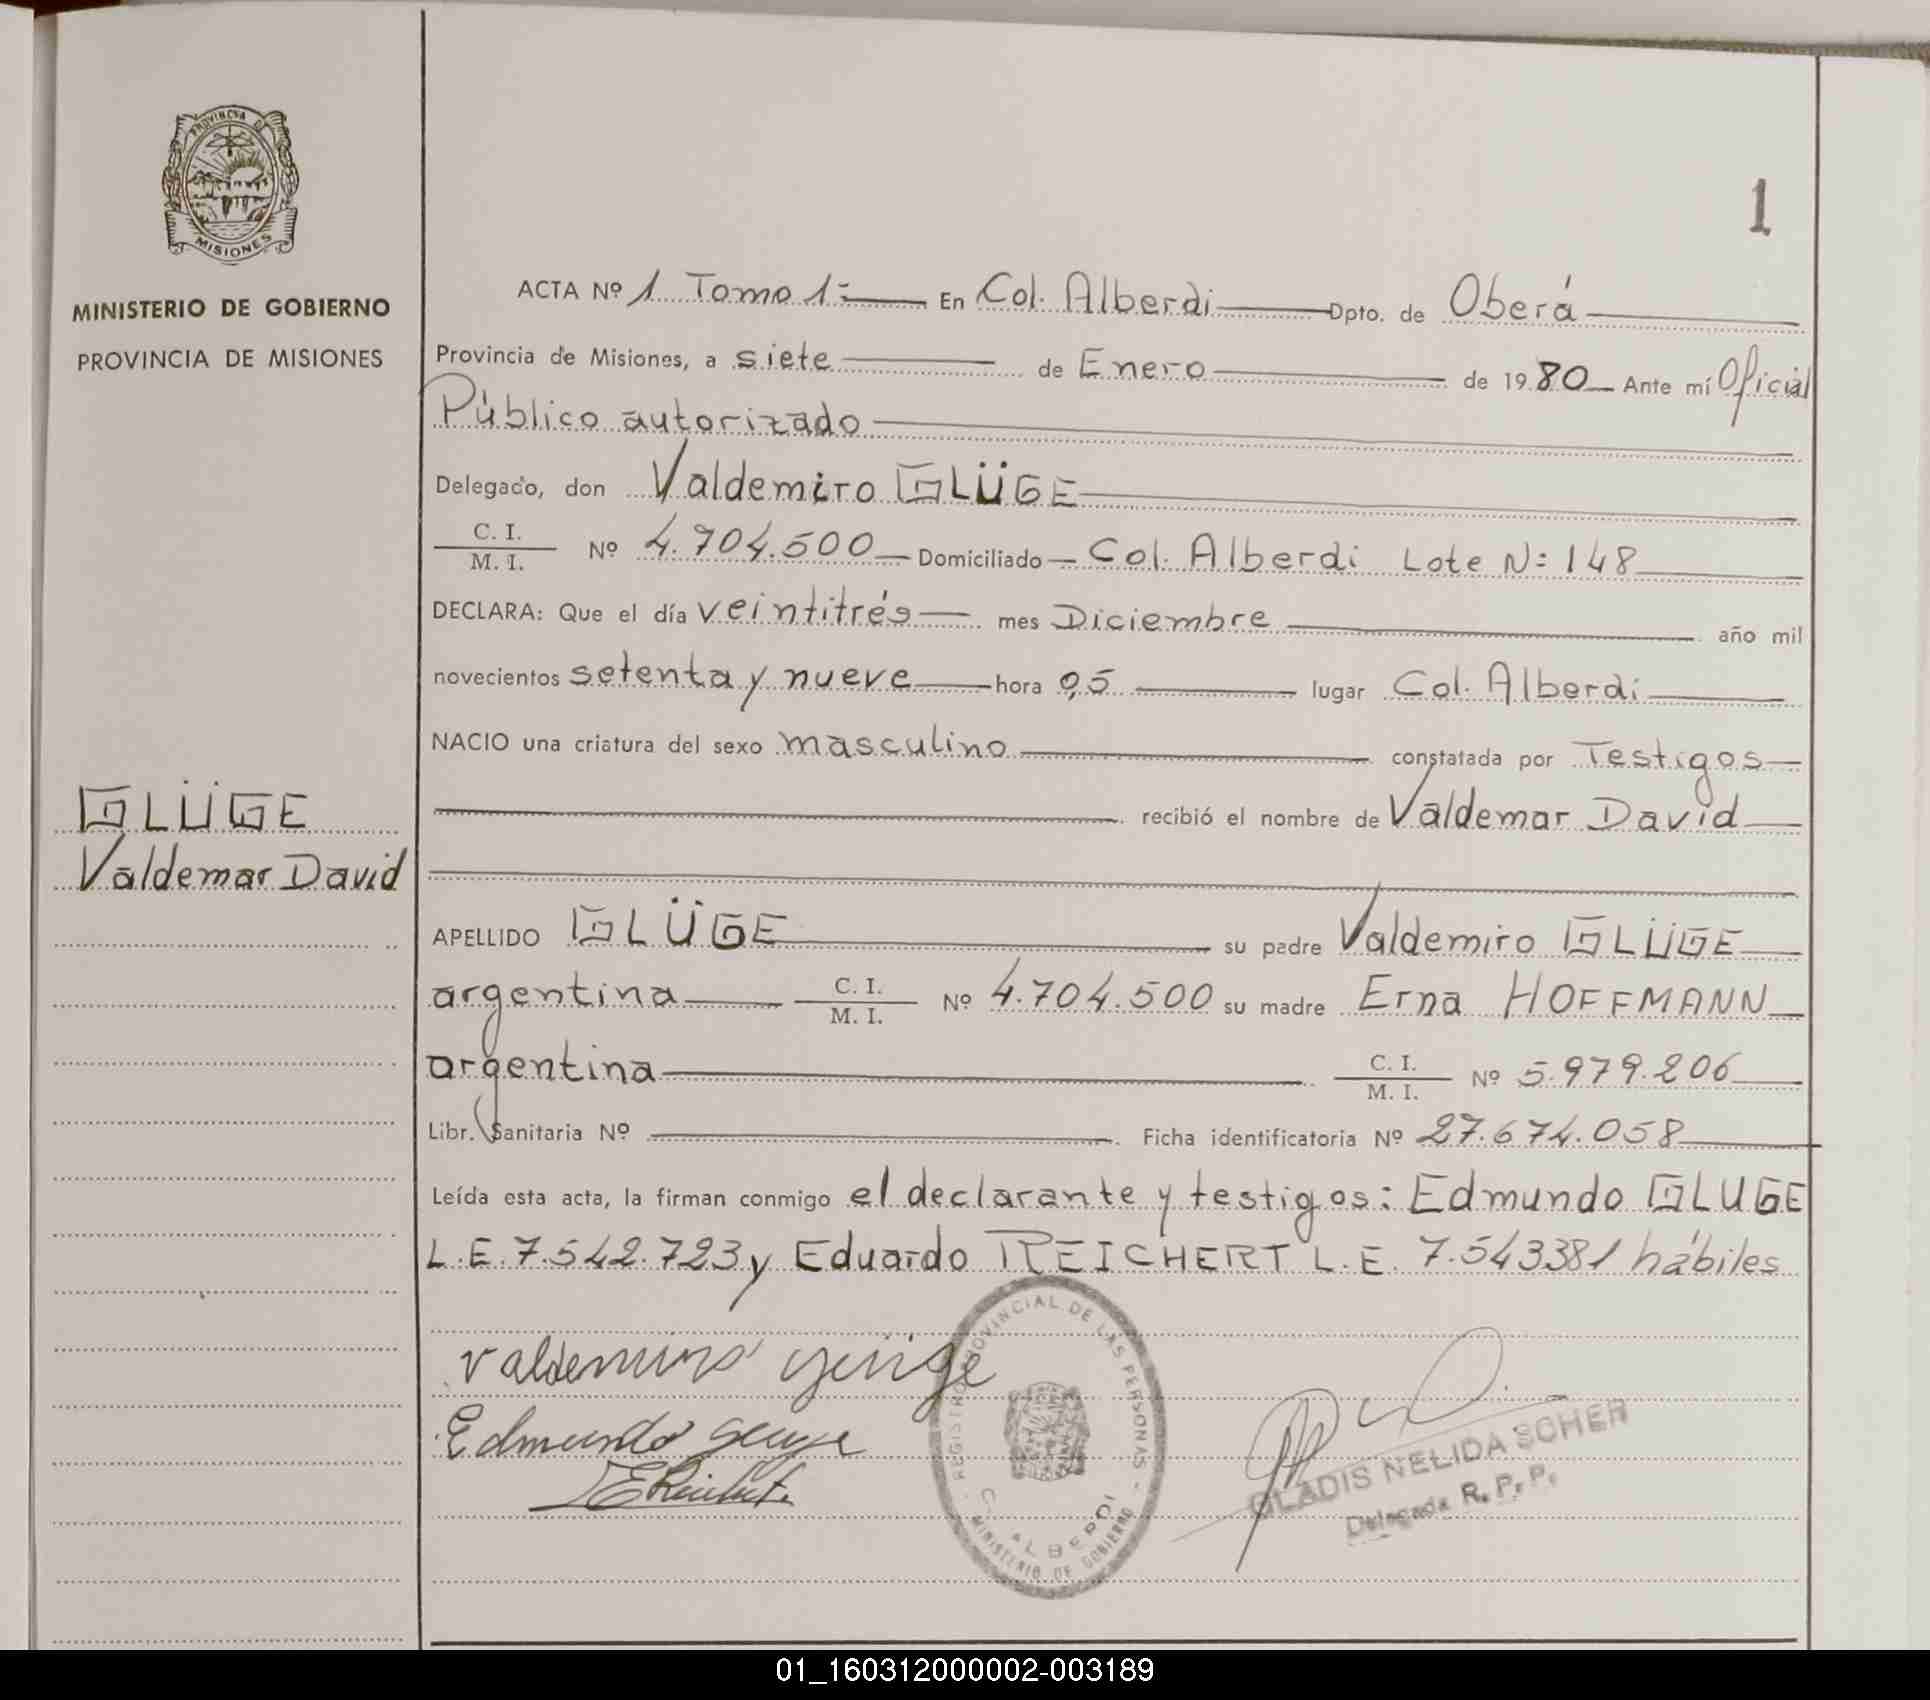 PROVINCIA DE
MISIONES
MINISTERIO DE GOBIERNO
PROVINCIA DE MISIONES
GLÜGE
Valdemar David
1
ACTA Nº 1 Tomo 1 = En Col. Alberdi Dpto. de Oberá
Provincia de Misiones, a siete de Enero de 1980 Ante mí Oficial
Público autorizado
Delegado, don Valdemiro GLÜGE
C. I.
M. I. Nº 4.704.500 Domiciliado Col. Alberdi Lote N: 148
DECLARA: Que el día veintitrés mes Diciembre año mil
novecientos setenta y nueve hora 05 lugar Col. Alberdi
NACIO una criatura del sexo masculino constatada por Testigos
recibió el nombre de Valdemar David
APELLIDO GLÜGE su padre Valdemiro GLÜGE
argentina C. I. M. I. Nº 4.704.500 su madre Erna HOFFMANN
argentina C. I. M. I. Nº 5.979.206
Libr. Sanitaria Nº Ficha identificatoria Nº 27.674.058
Leída esta acta, la firman conmigo el declarante y testigos: Edmundo GLUGE
L.E. 7.542.723 y Eduardo REICHERT L.E. 7.543381 hábiles
Valdemiro
Edmundo
REGISTRO PROVINCIAL DE LAS PERSONAS
C. ALBERDI
MINISTERIO DE GOBIERNO
GLADIS NELIDA SCHER
Delegada R. P. P.
01_160312000002-003189